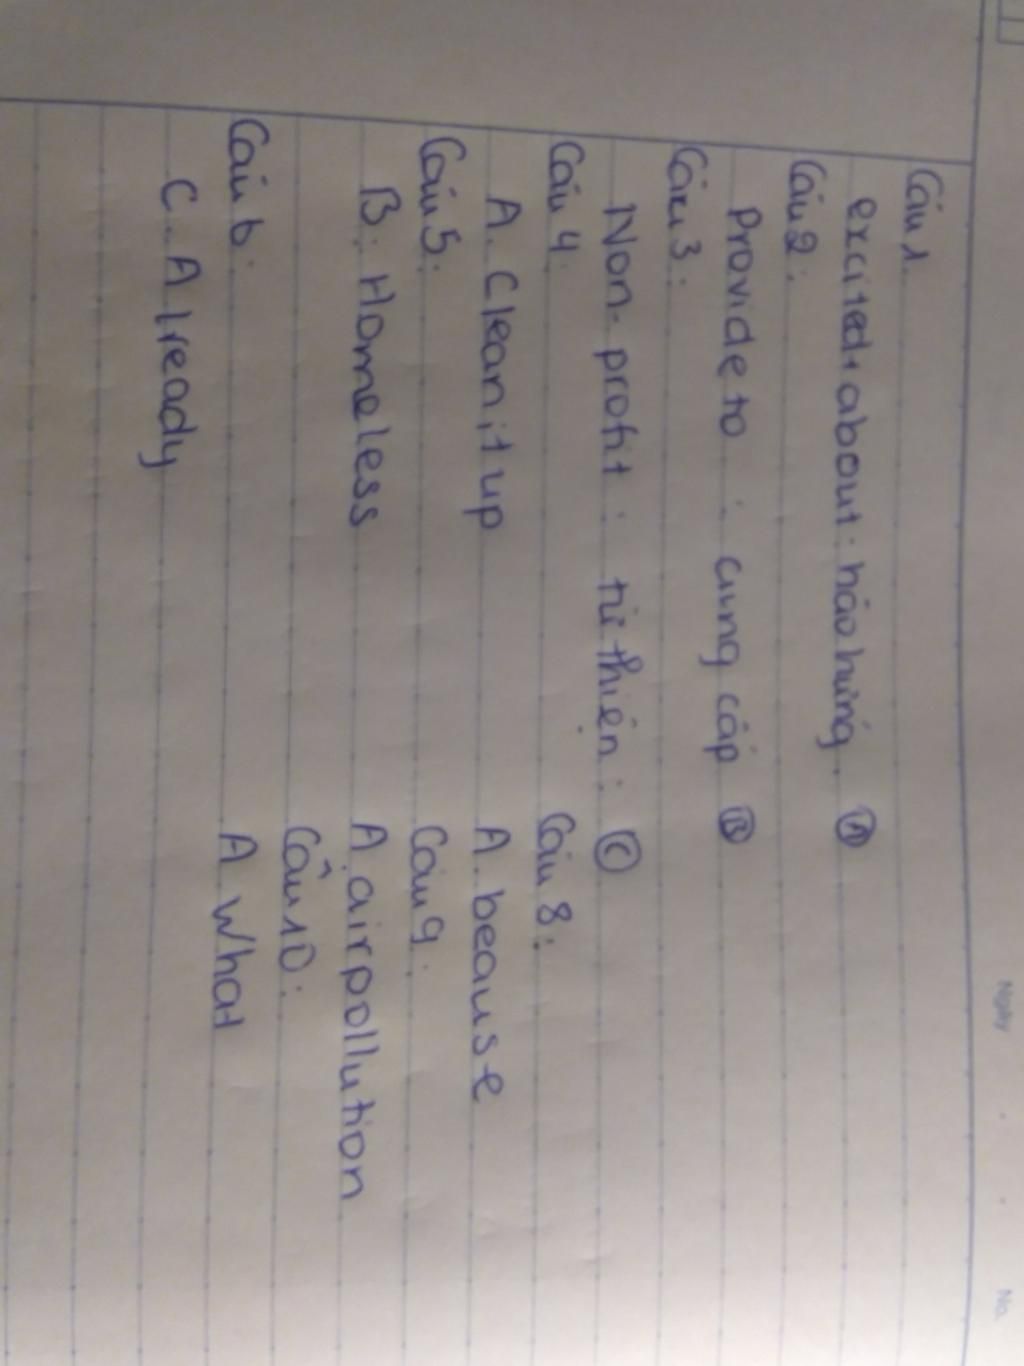 Câu 1.
excited about: hào hứng. (A)
Câu 2:
Provide to : cung cấp (B)
Câu 3:
Non-profit : từ thiện : (C)
Câu 4.
A. Clean it up
Câu 5.
B. Homeless
Câu 6.
C. Already
Câu 8:
A. beause
Câu 9.
A. air pollution
Câu 10:
A What
Ngày . .
No.